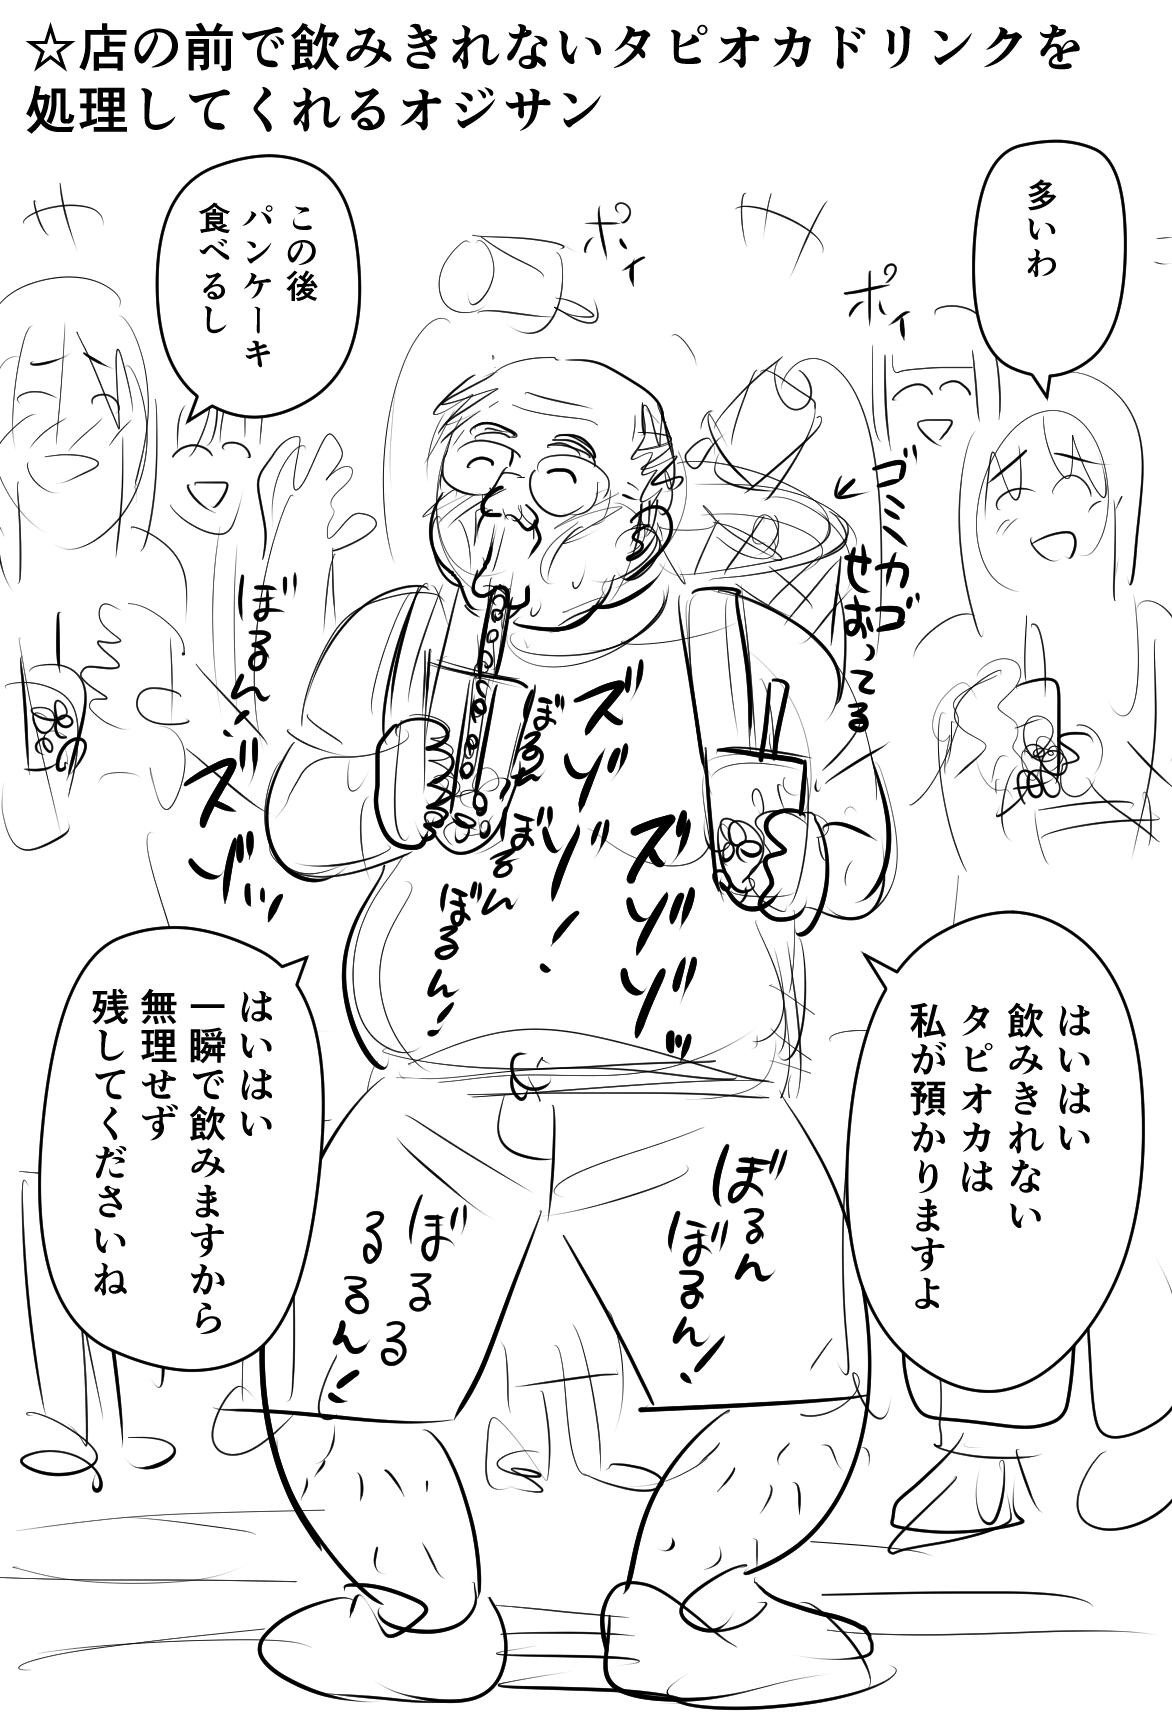 ☆店の前で飲みきれないタピオカドリンクを
処理してくれるオジサン
多いわ
この後
パンケーキ
食べるし
ポイ
ポイ
ゴミカゴ
せおってる
ぼるん!
ズゾッ
ズゾゾ!
ズゾゾゾッ
ぼるん
ぼるん
ぼるん!
はいはい
飲みきれない
タピオカは
私が預かりますよ
はいはい
一瞬で飲みますから
無理せず
残してくださいね
ぼるん
ぼるん!
ぼるる
るるん!